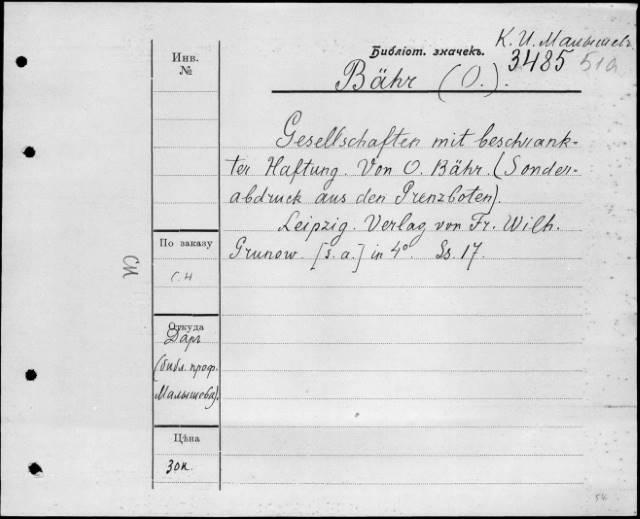 К. И. Малышевъ
Библіот. значекъ. 3485 51a
Bähr (O.).
Инв.
№
Gesellschaften mit beschränk-
ter Haftung. Von O. Bähr. (Sonder-
abdruck aus den Grenzboten).
Leipzig. Verlag von Fr. Wilh.
Grunow. [s. a.] in 4°. Ss. 17.
По заказу
с.н
СИ
Откуда
Даръ
(библ. проф.
Малышева).
Цѣна
30к.
54